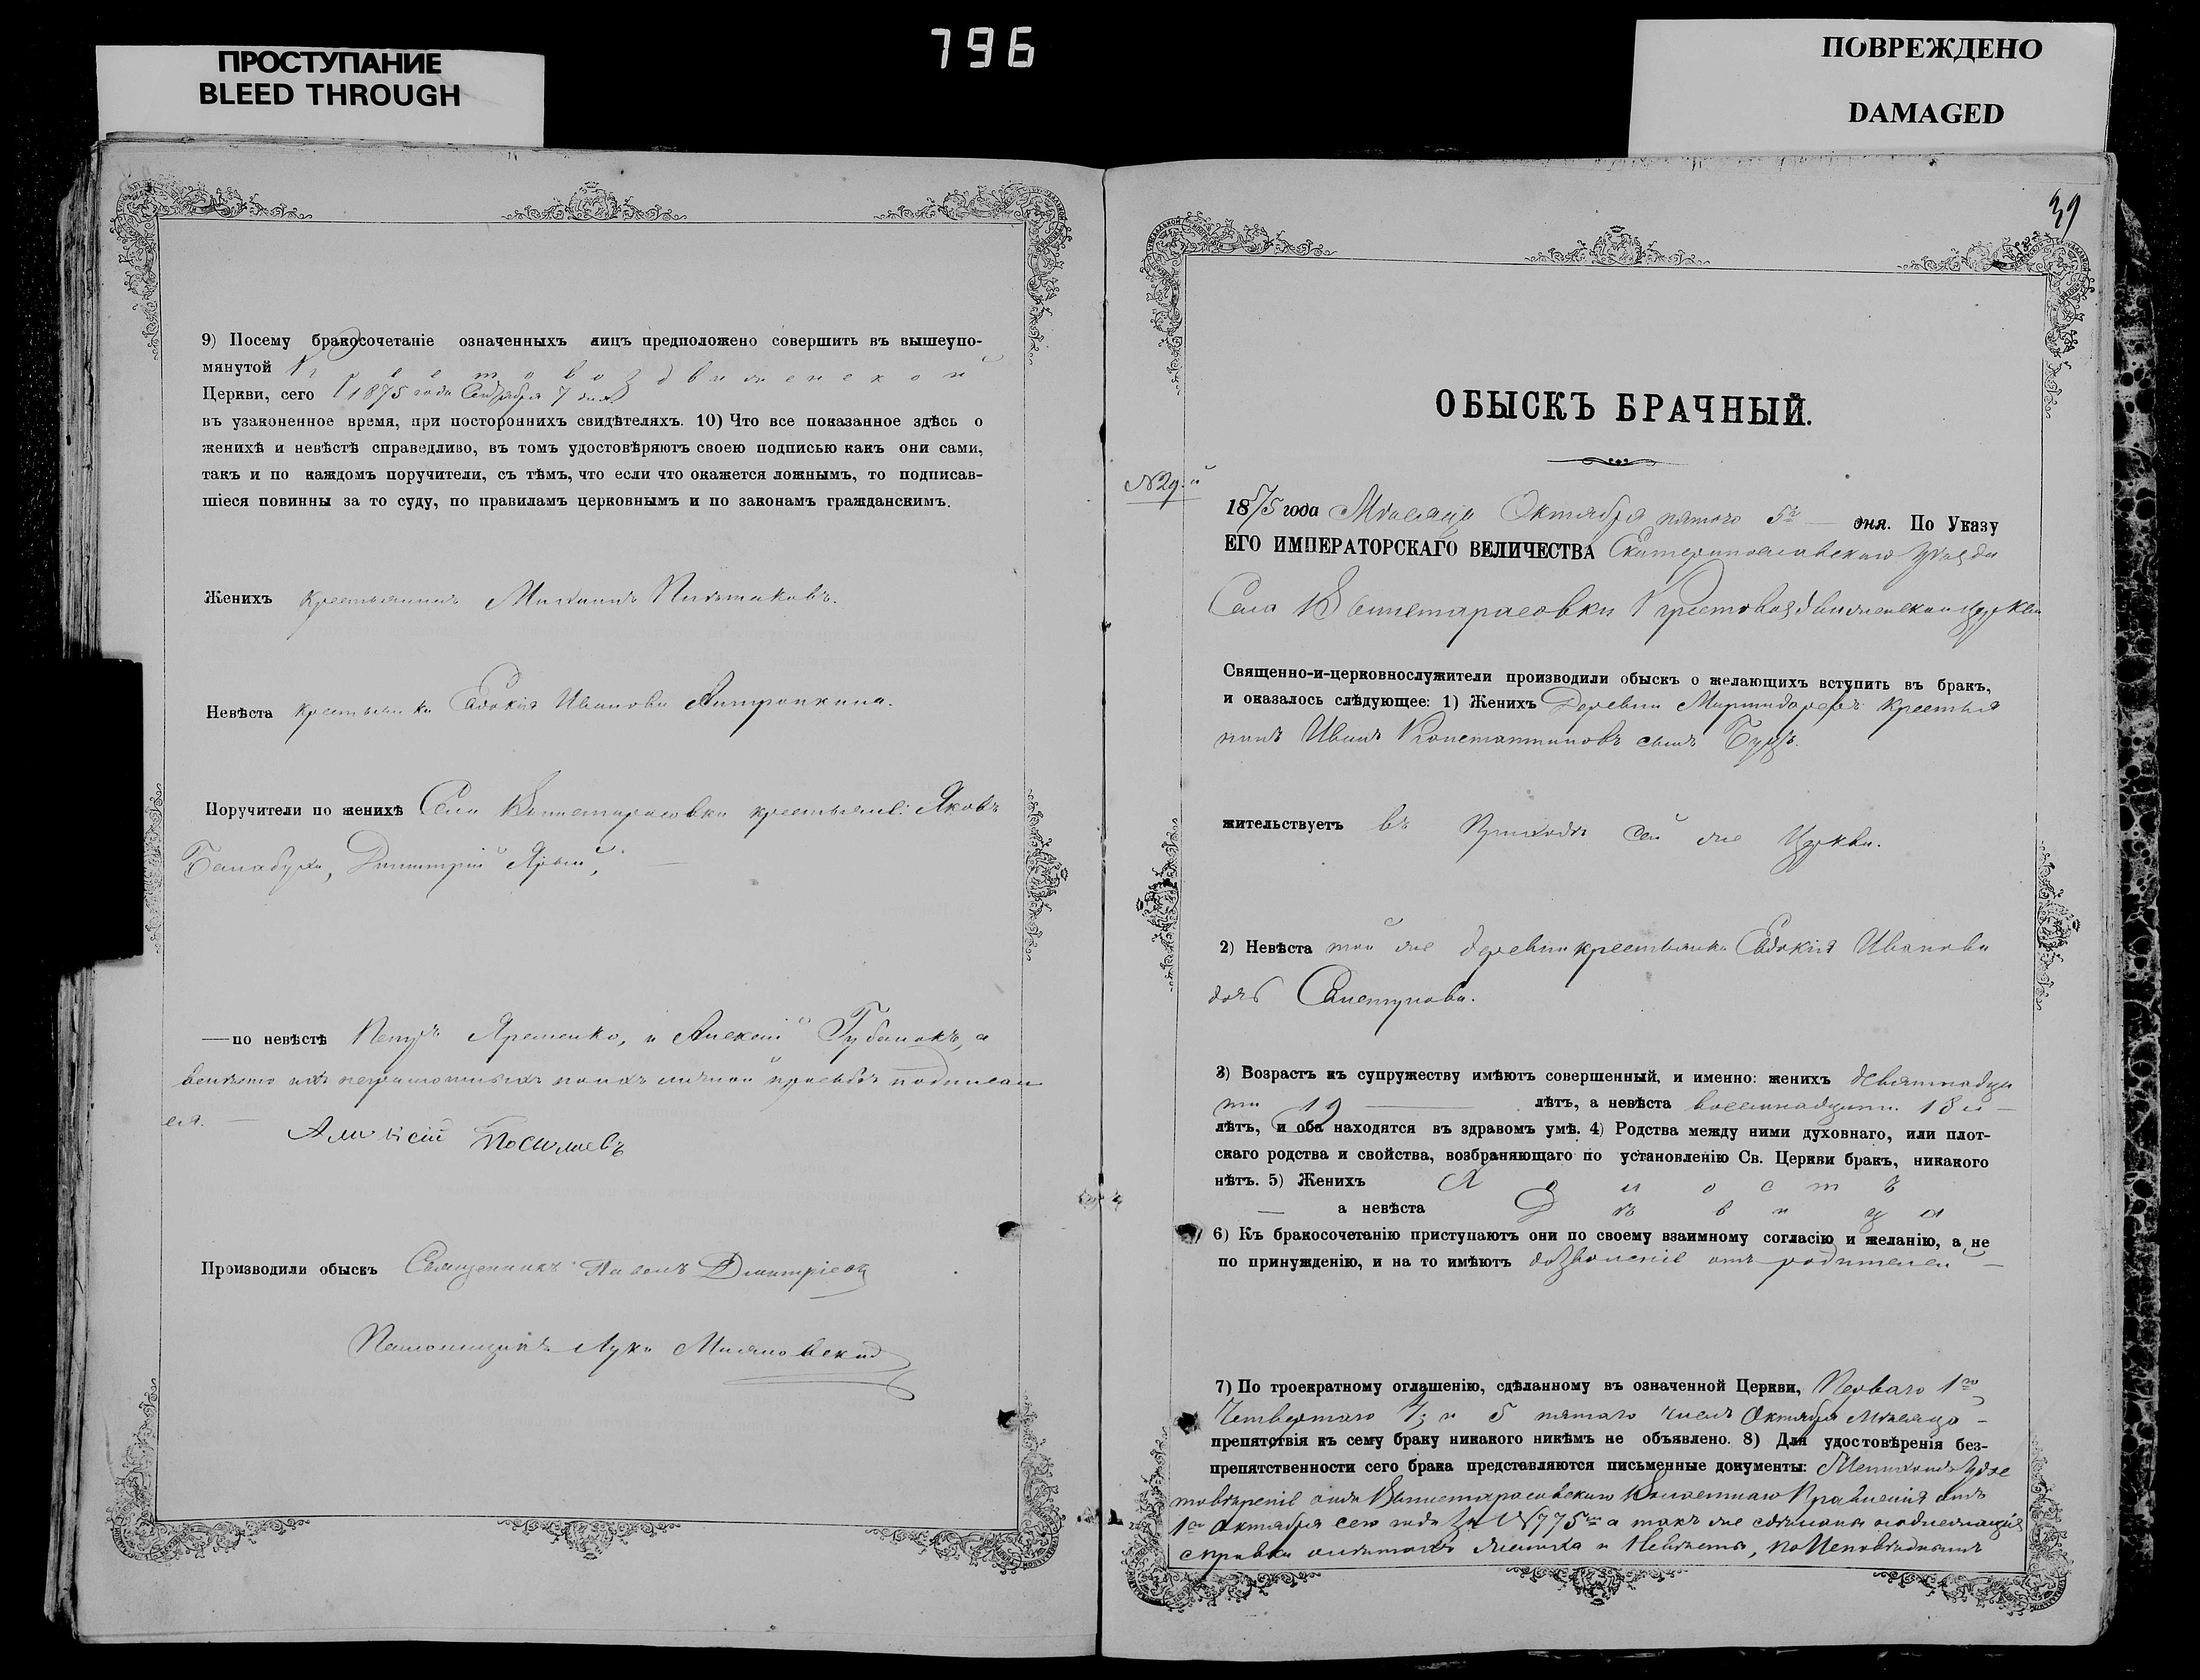 ПРОСТУПАНИЕ
BLEED THROUGH
796
ПОВРЕЖДЕНО
DAMAGED
9) Посему бракосочетаніе означенныхъ лицъ предположено совершить въ вышеупо-
мянутой Крестовоздвиженской
Церкви, сего 1875 года Сентября 7 дня
въ узаконенное время, при постороннихъ свидѣтеляхъ. 10) Что все показанное здѣсь о
женихѣ и невѣстѣ справедливо, въ томъ удостовѣряютъ своею подписью какъ они сами,
такъ и по каждомъ поручители, съ тѣмъ, что если что окажется ложнымъ, то подписав-
шіеся повинны за то суду, по правиламъ церковнымъ и по законамъ гражданскимъ.
Женихъ крестьянинъ Михаилъ
Невѣста крестьянка Евдокія Иванова
Поручители по женихѣ Села крестьяне: Яковъ
Димитрій Ярый,
—по невѣстѣ Петръ Яременко, и Алексій а
вмѣсто ихъ неграмотныхъ по ихъ личной просьбѣ подписал
ся.
Алексій
Производили обыскъ Священникъ Павелъ
Лука
39
ОБЫСКЪ БРАЧНЫЙ.
№29.й
1875 года Мѣсяца Октября пятого 5го — дня. По Указу
ЕГО ИМПЕРАТОРСКАГО ВЕЛИЧЕСТВА Екатеринославскаго уѣзда
Села Вышетарасовки Крестовоздвиженской церкви
Священно-и-церковнослужители производили обыскъ о желающихъ вступить въ бракъ,
и оказалось слѣдующее: 1) Женихъ Деревни крестья
нинъ Иванъ Константиновъ сынъ
жительствуетъ въ Приходѣ сей же Церкви.
2) Невѣста той же деревни крестьянка Евдокія Иванова
дочь
3) Возрастъ къ супружеству имѣютъ совершенный, и именно: женихъ девятнадца
ти 19 — лѣтъ, а невѣста восемнадцати 18 и —
лѣтъ, и оба находятся въ здравомъ умѣ. 4) Родства между ними духовнаго, или плот-
скаго родства и свойства, возбраняющаго по установленію Св. Церкви бракъ, никакого
нѣтъ. 5) Женихъ Холостъ
— а невѣста Дѣвица
6) Къ бракосочетанію приступаютъ они по своему взаимному согласію и желанію, а не
по принужденію, и на то имѣютъ дозволеніе отъ родителей —
7) По троекратному оглашенію, сдѣланному въ означенной Церкви, Перваго 1го
Четвертаго 4; и 5 пятаго чиселъ Октября Мѣсяца —
препятствія къ сему браку никакого никѣмъ не объявлено. 8) Для удостовѣренія без-
препятственности сего брака представляются письменные документы: Женихомъ Удос
товѣреніе отъ Вышетарасовскаго Волостнаго Правленія отъ
1го Октября сего года за №775м а также сдѣланы надлежащія
справки о лѣтахъ жениха и Невѣсты, по Исповѣднымъ